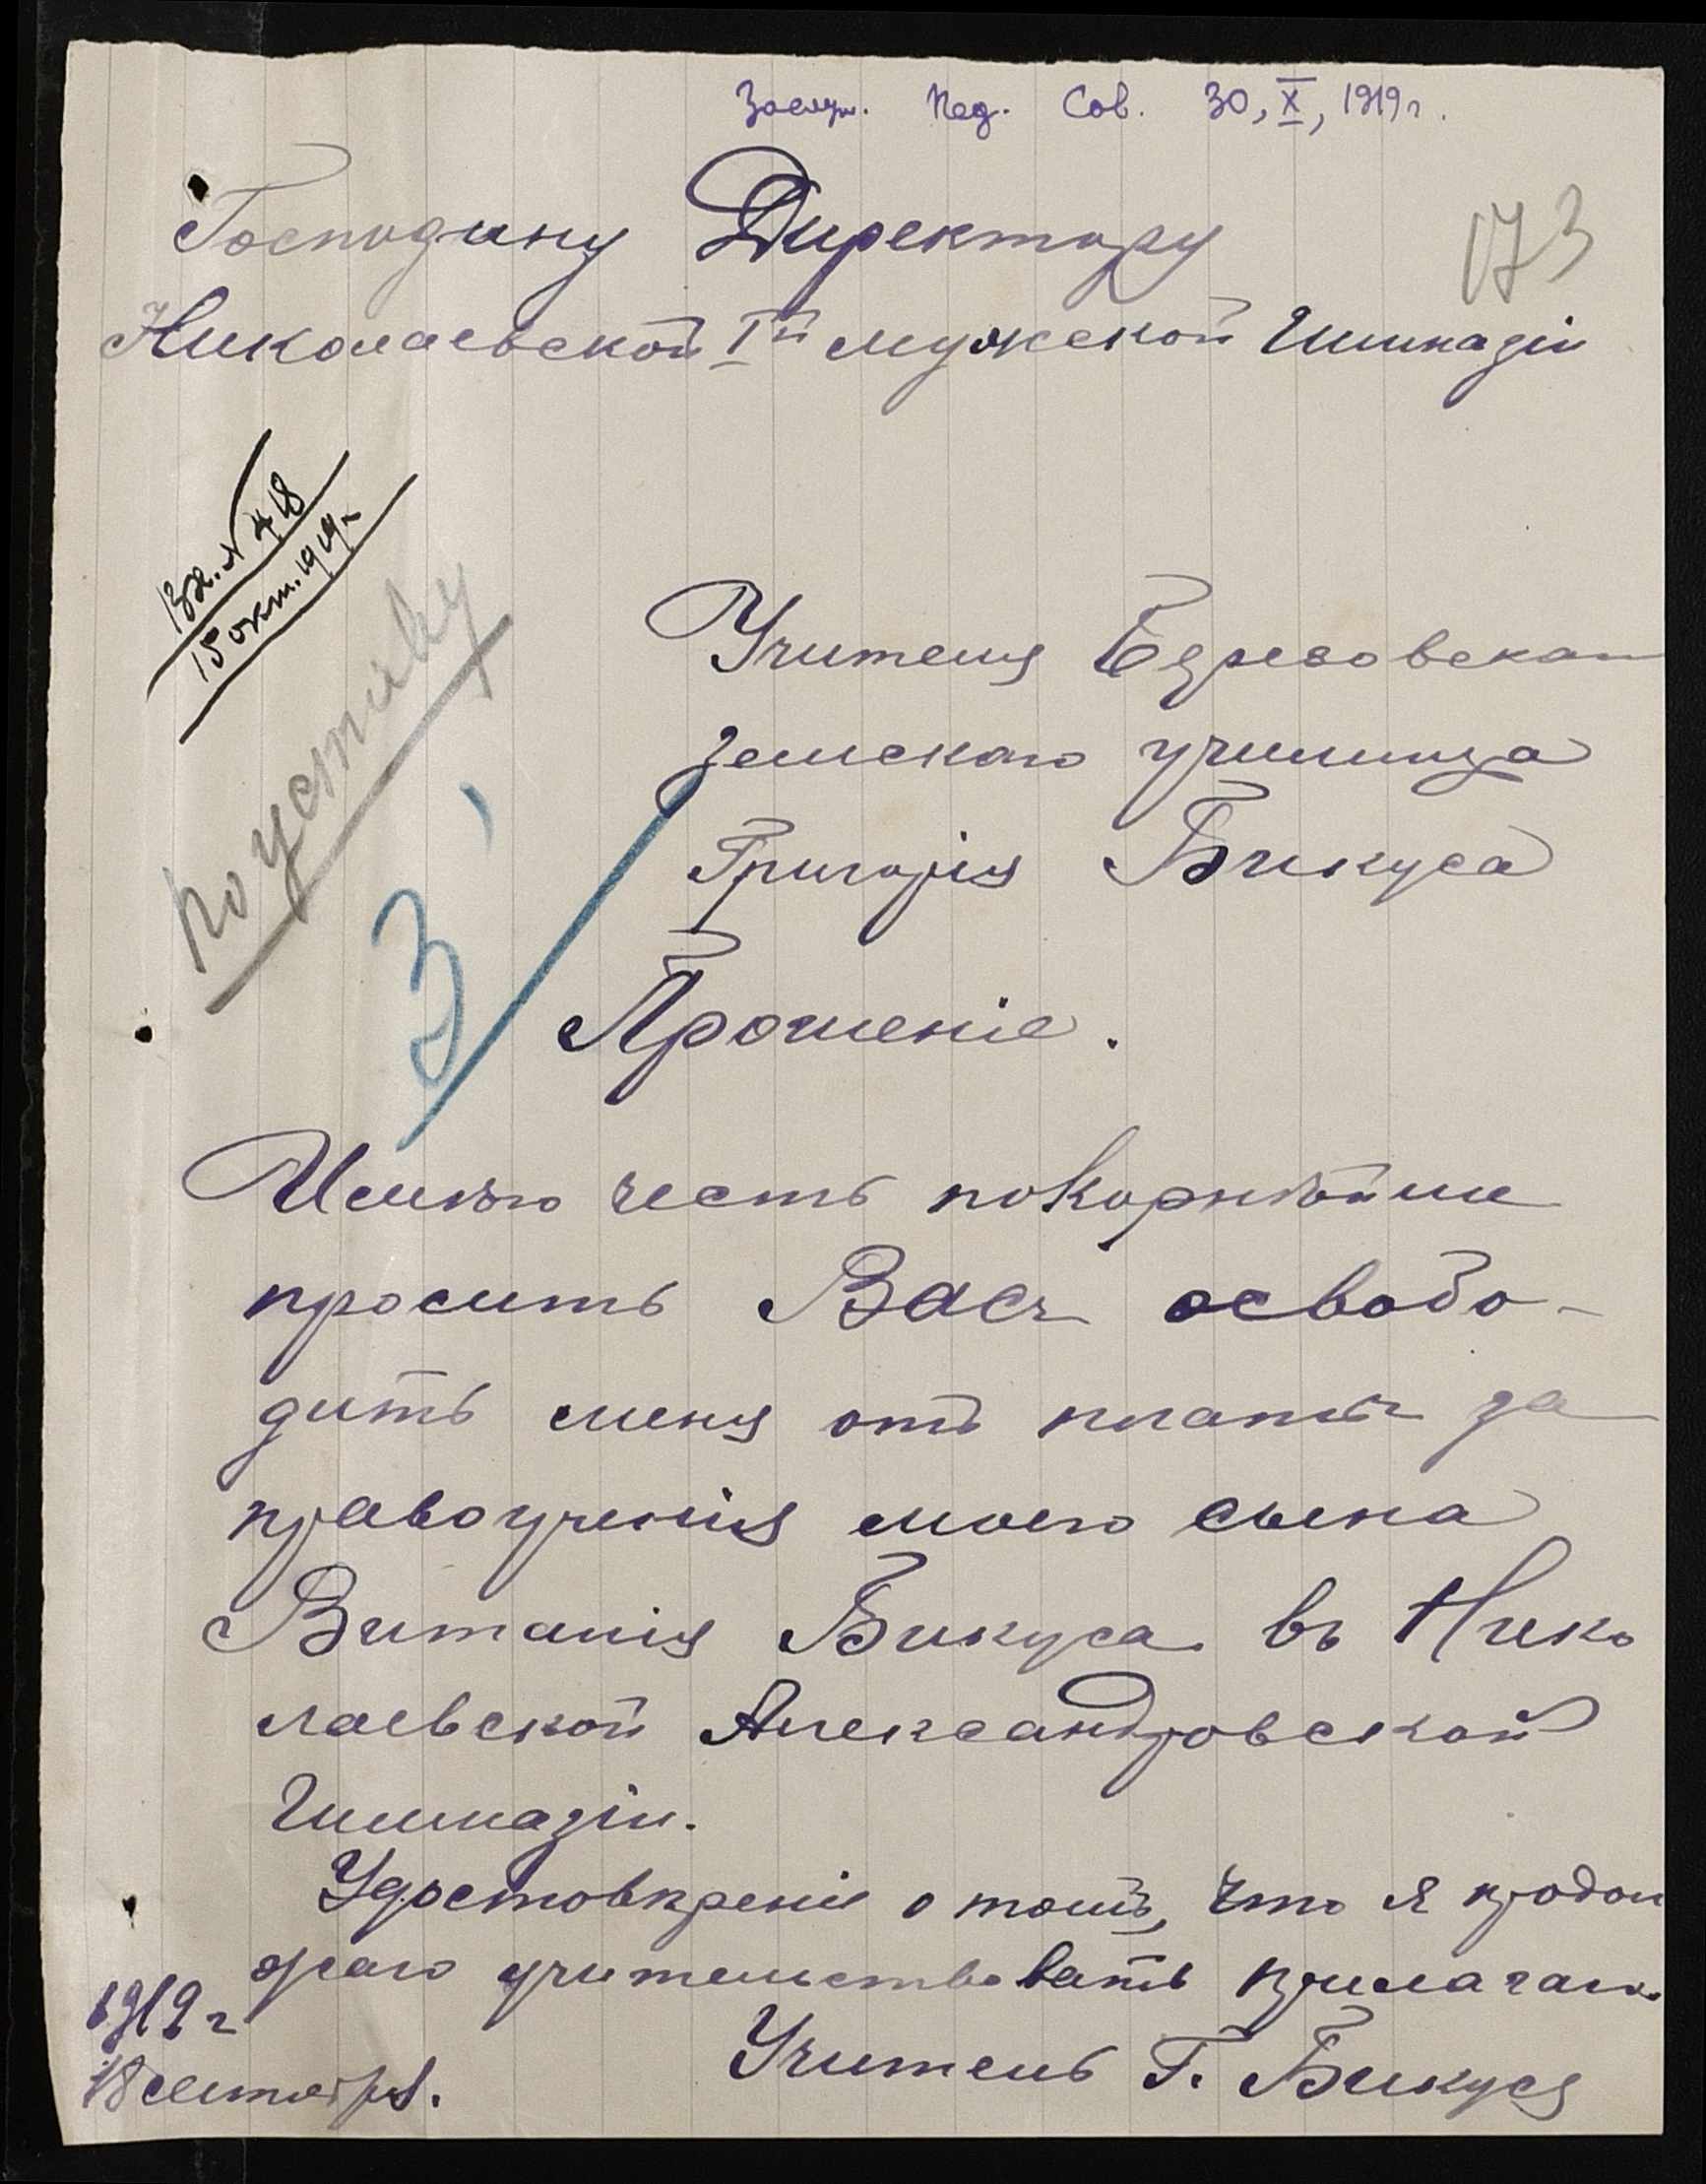 Заслуш. Пед. Сов. 30, X, 1919 г.
173
Господину Директору
Николаевской I й мужской Гимназіи
Вх. № 418
15 окт. 1919 г.
3
Учителя Березовскаго
земскаго училища
Григорія Бикуса
Прошеніе.
Имѣю честь покорнѣйше
просить Васъ освобо-
дить меня отъ платы за
правоученія моего сына
Виталія Бикуса въ Нико
лаевской Александровской
Гимназіи.
Удостовѣреніе о томъ, что я продол
жаю учительствовать прилагаю.
1919 г
18 сентября.
Учитель Г. Бикусъ